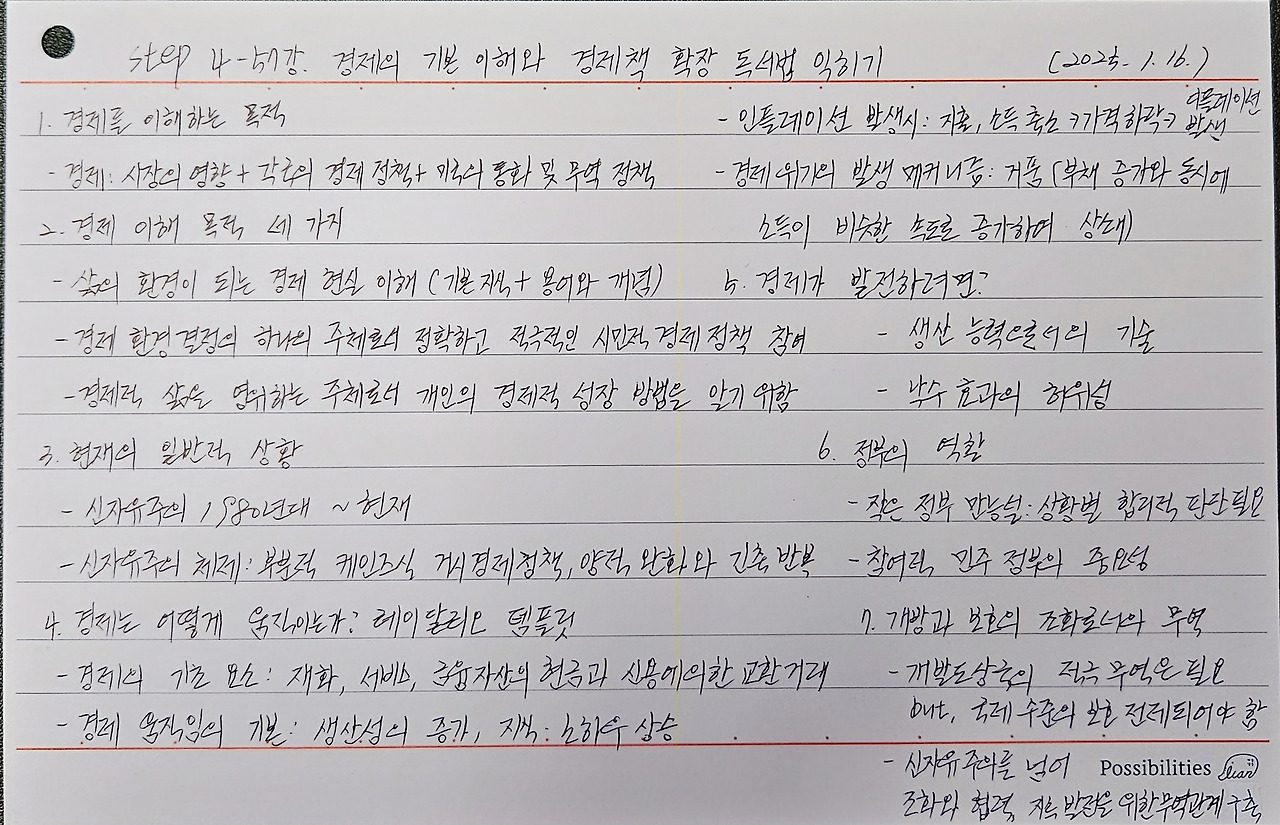 step 4-57강. 경제의 기본 이해와 경제책 확장 독서법 익히기 (2025. 1. 16.)
1. 경제를 이해하는 목적
- 경제: 시장의 영향 + 각국의 경제 정책 + 미국의 통화 및 무역 정책
2. 경제 이해 목적 세 가지
- 삶의 환경이 되는 경제 현실 이해 (기본 지식 + 용어와 개념)
- 경제 환경 결정의 하나의 주체로서 정확하고 적극적인 시민적 경제 정책 참여
- 경제적 삶을 영위하는 주체로서 개인의 경제적 성장 방법을 알기 위함
3. 현재의 일반적 상황
- 신자유주의 1980년대 ~ 현재
- 신자유주의 체제: 부분적 케인즈식 거시경제정책, 양적 완화와 긴축 반복
4. 경제는 어떻게 움직이는가? 레이 달리오 템플릿
- 경제의 기초 요소: 재화, 서비스, 금융자산의 현금과 신용에 의한 교환거래
- 경제 움직임의 기본: 생산성의 증가, 지식·노하우 상승
- 인플레이션 발생시: 지출, 소득 축소 → 가격 하락 → 디플레이션 발생
- 경제 위기의 발생 메커니즘: 거품 (부채 증가와 동시에
소득이 비슷한 속도로 증가하며 상쇄)
5. 경제가 발전하려면?
- 생산 능력으로서의 기술
- 낙수 효과의 허위성
6. 정부의 역할
- 작은 정부 만능설: 상황별 합리적 판단 필요
- 참여적 민주 정부의 중요성
7. 개방과 보호의 조화로서의 무역
- 개발도상국의 적극 무역은 필요
but, 국제 수준의 보호 전제되어야 함
- 신자유주의를 넘어
조화와 협력, 지속 발전을 위한 무역관계 구축
Possibilities